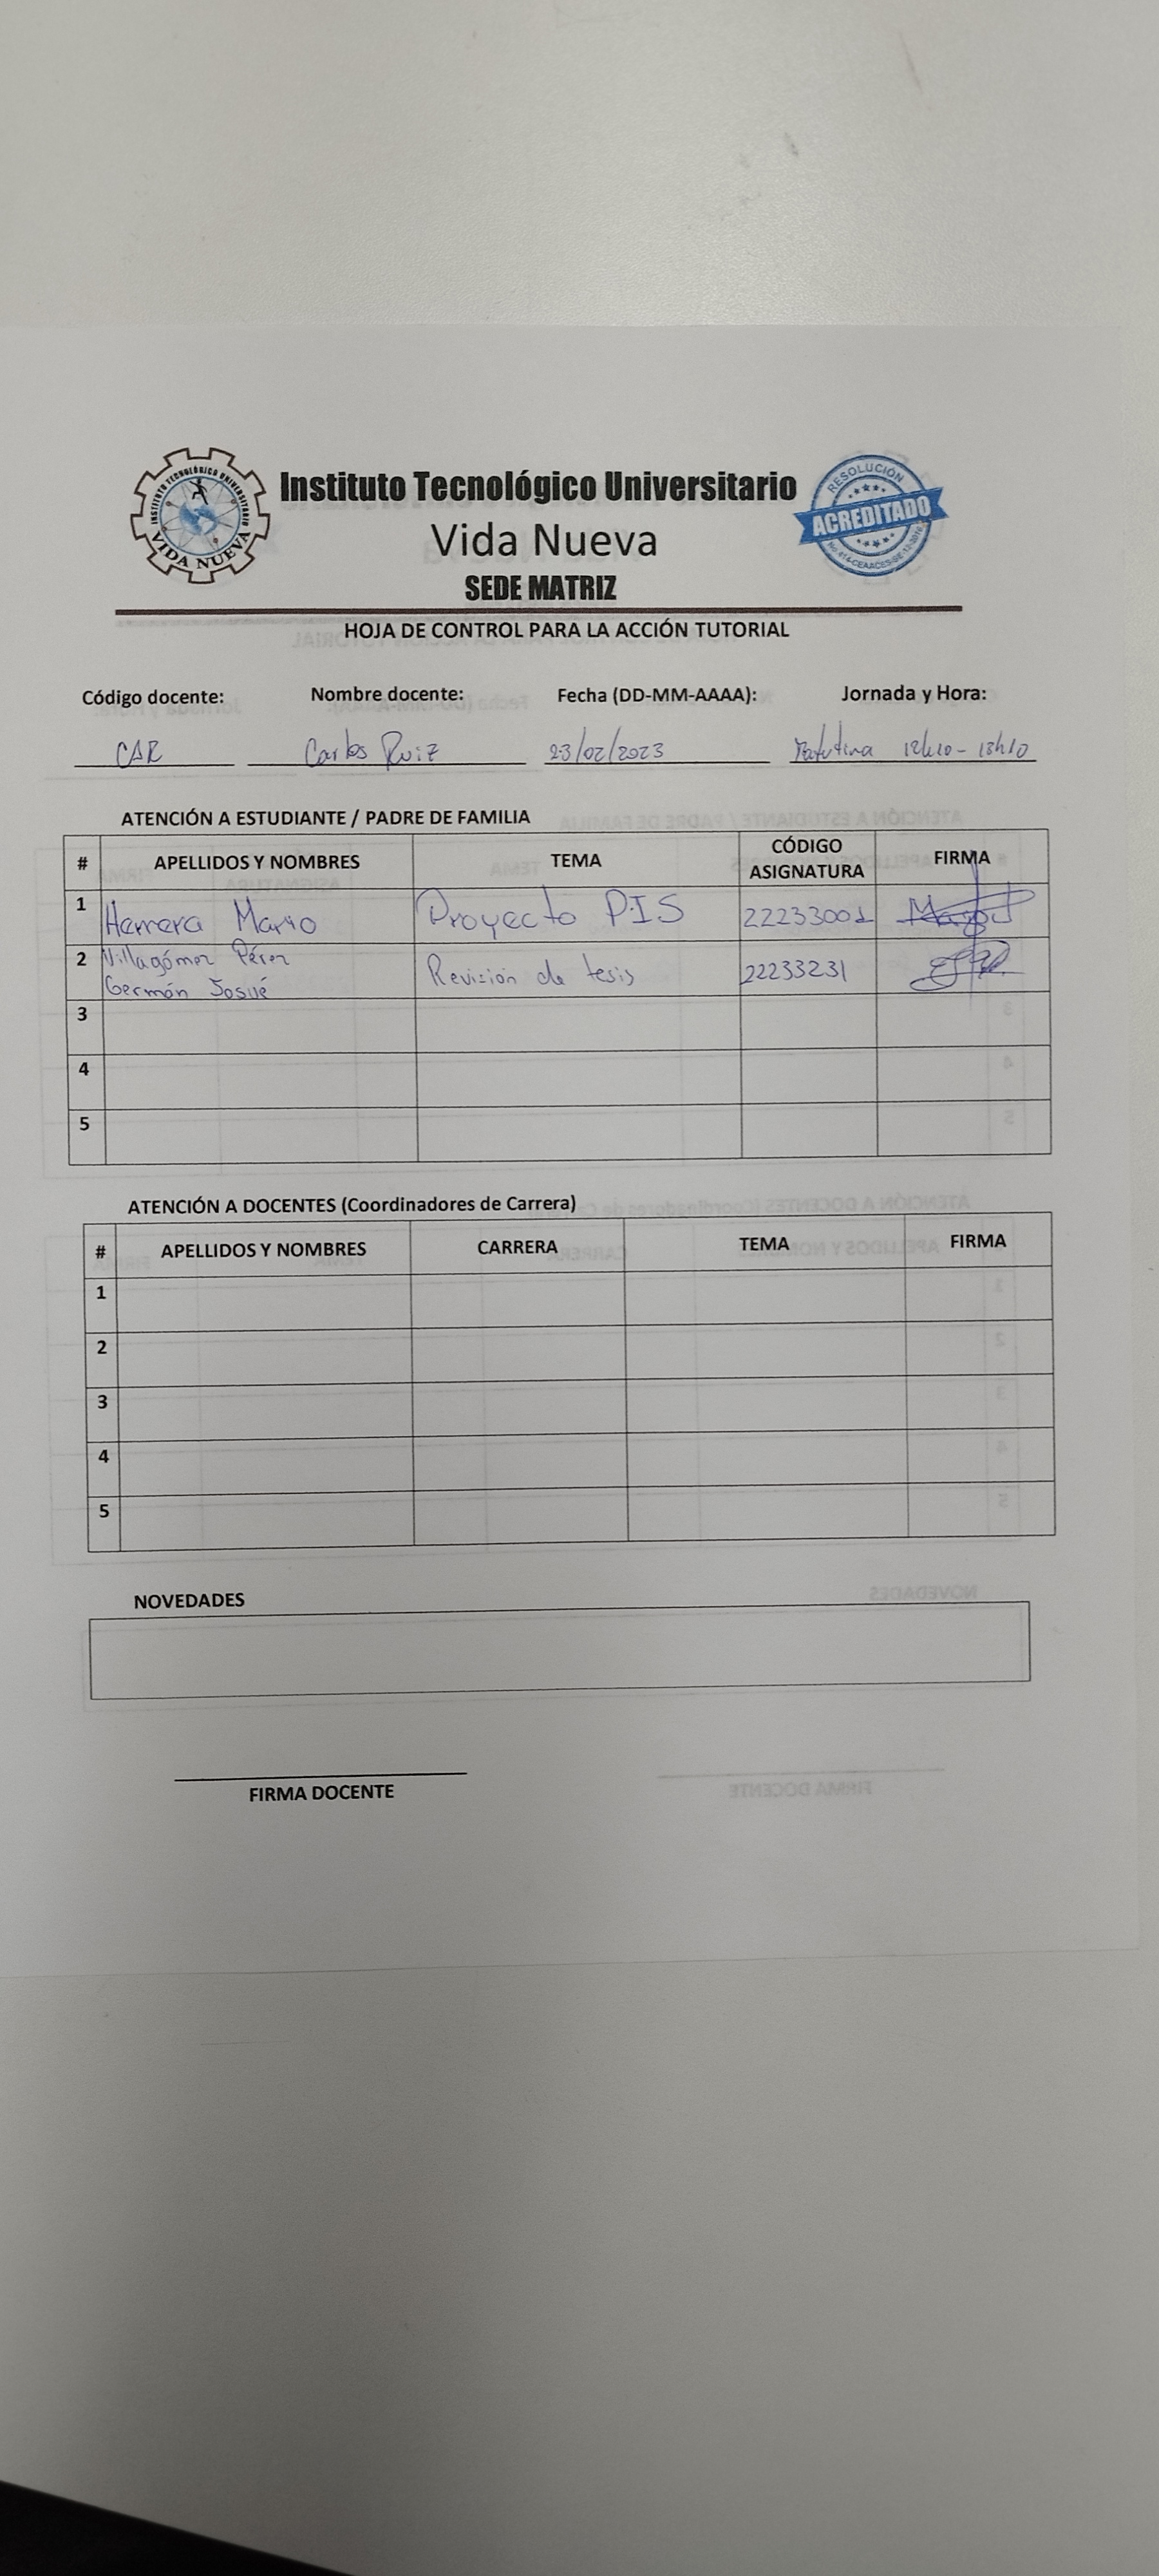 INSTITUTO TECNOLÓGICO UNIVERSITARIO
VIDA NUEVA
Instituto Tecnológico Universitario
Vida Nueva
SEDE MATRIZ
RESOLUCIÓN
ACREDITADO
HOJA DE CONTROL PARA LA ACCIÓN TUTORIAL
Código docente: Nombre docente: Fecha (DD-MM-AAAA): Jornada y Hora:
CAR Carlos Ruiz 23/02/2023 Matutina 12h10-13h10
ATENCIÓN A ESTUDIANTE / PADRE DE FAMILIA
# APELLIDOS Y NOMBRES TEMA CÓDIGO ASIGNATURA FIRMA
1 Herrera Mario Proyecto PIS 22233001
2 Villagómez Pérez Germán Josué Revisión de tesis 22233231
3
4
5
ATENCIÓN A DOCENTES (Coordinadores de Carrera)
# APELLIDOS Y NOMBRES CARRERA TEMA FIRMA
1
2
3
4
5
NOVEDADES
FIRMA DOCENTE